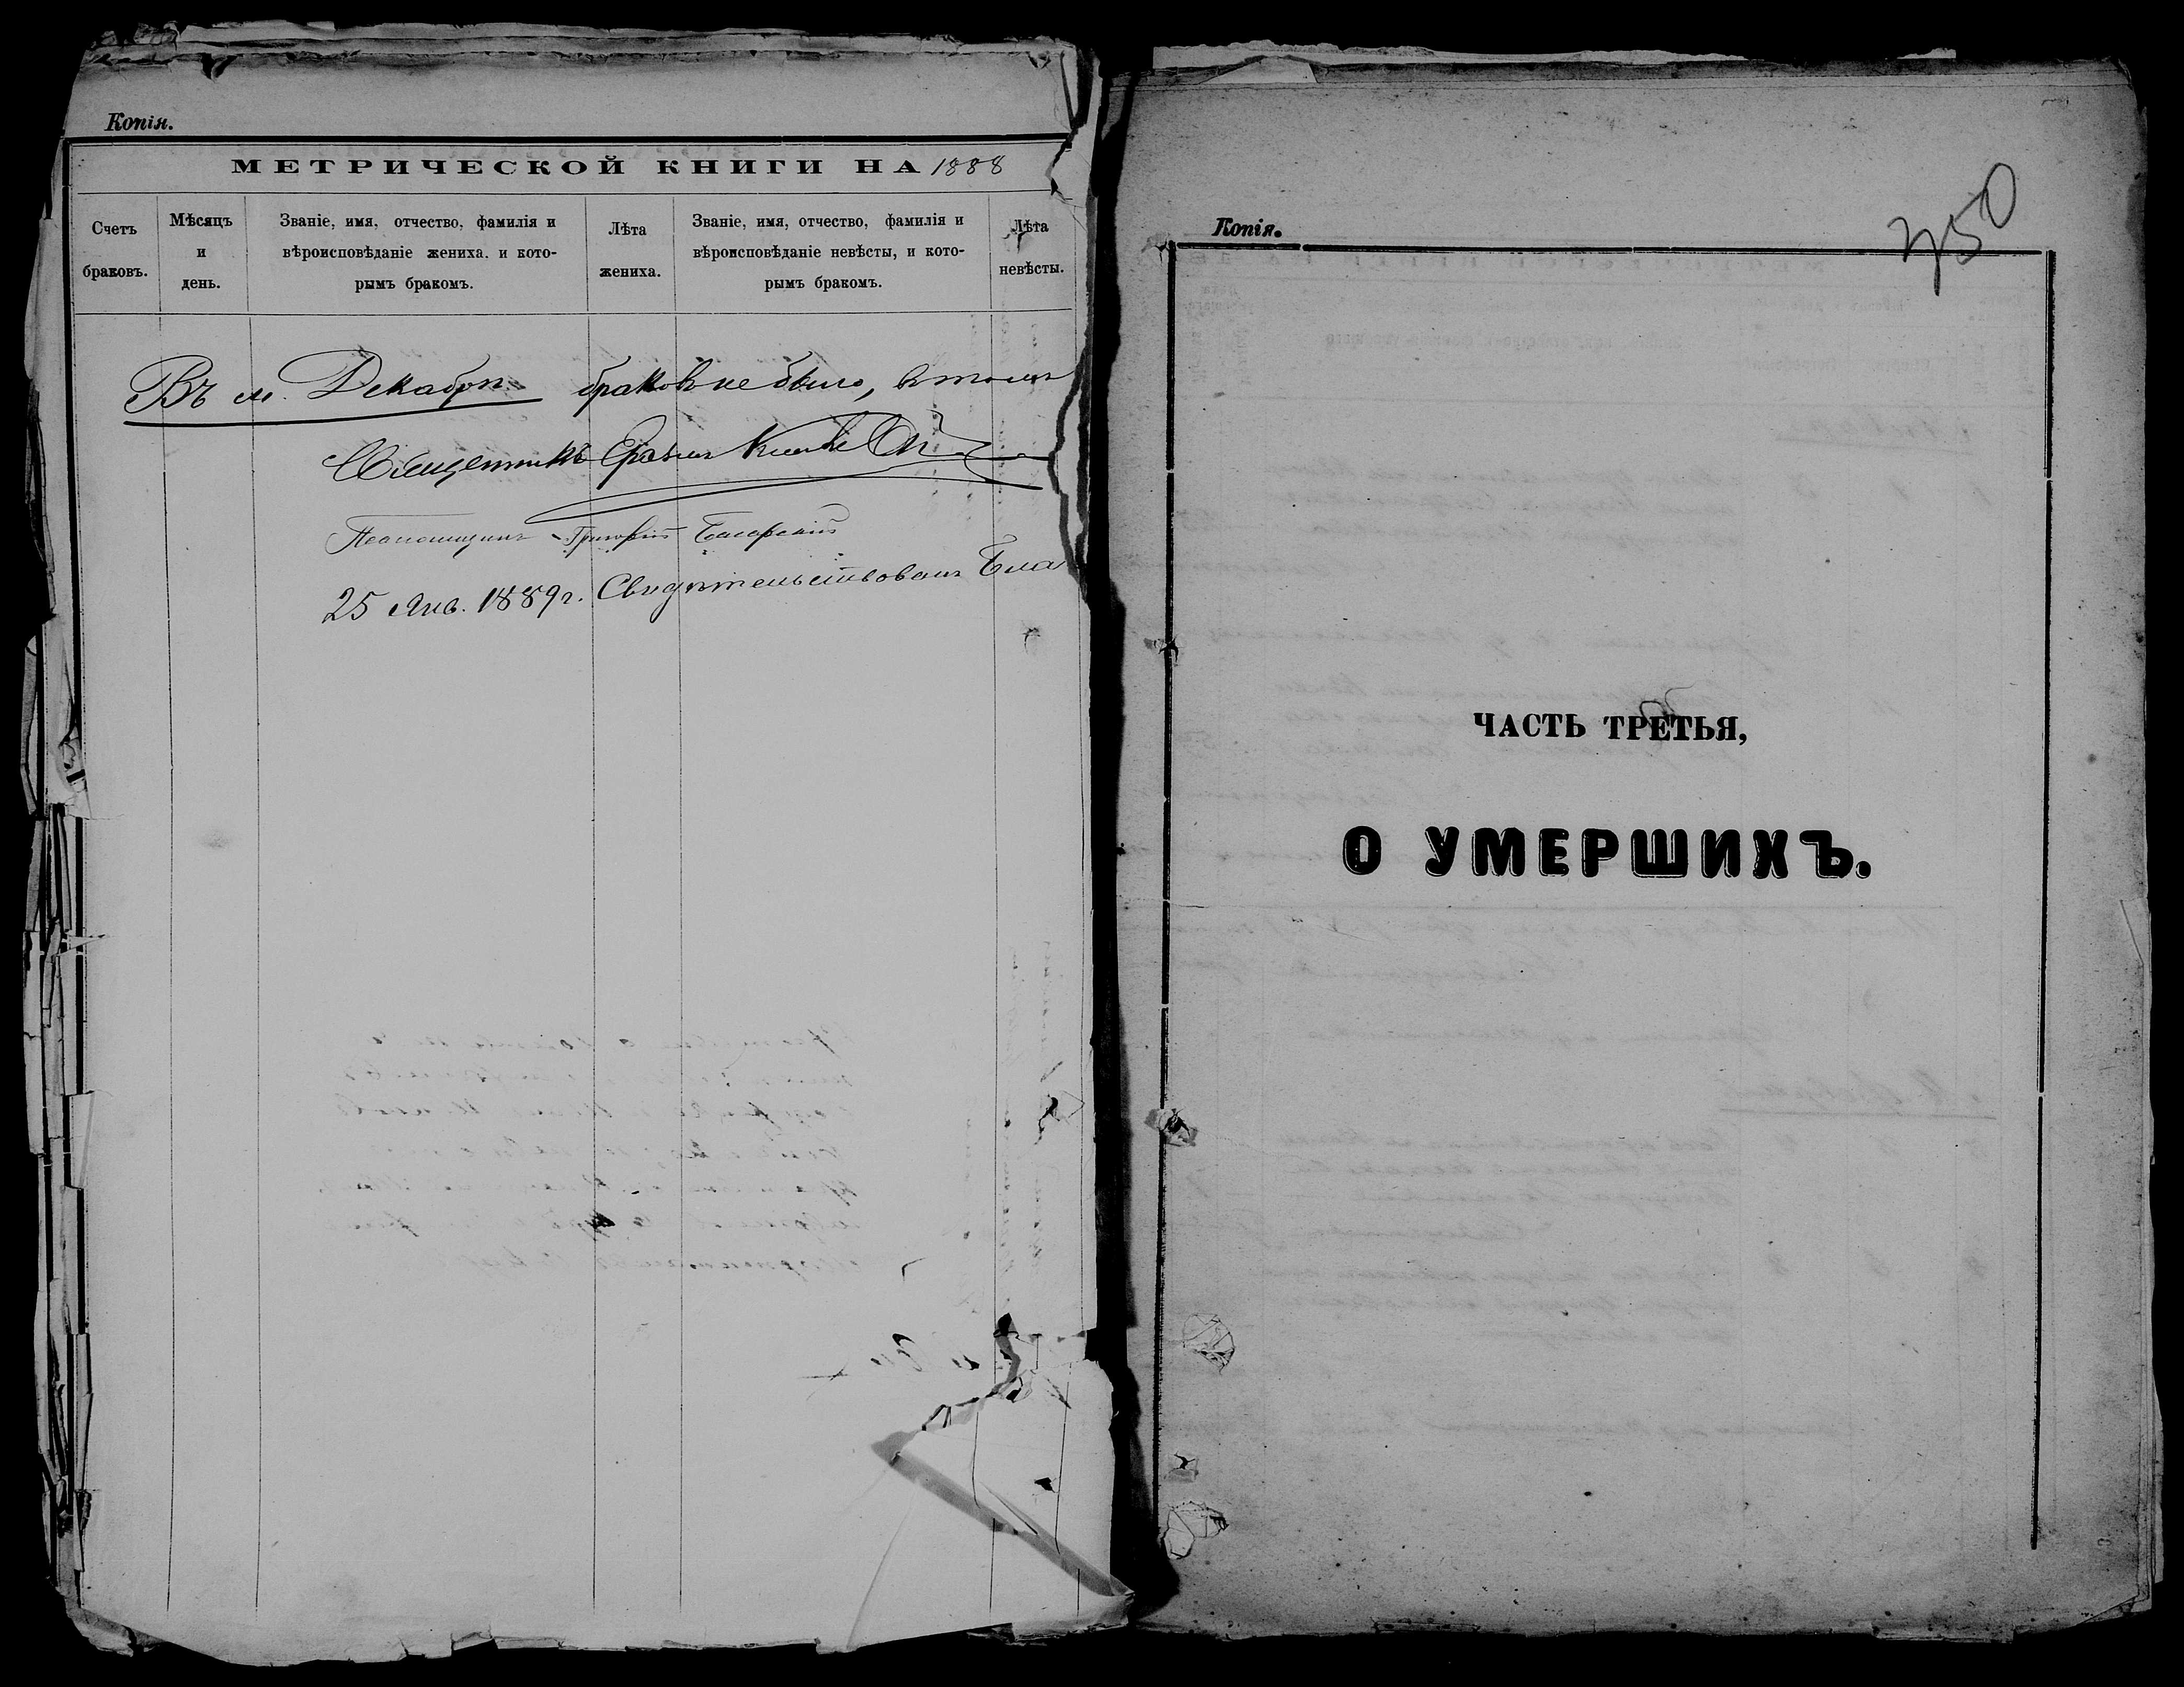 Копія.
МЕТРИЧЕСКОЙ КНИГИ НА 1888
Счетъ браковъ.
Мѣсяцъ и день.
Званіе, имя, отчество, фамилія и
вѣроисповѣданіе жениха. и кото-
рымъ бракомъ.
Лѣта жениха.
Званіе, имя, отчество, фамилія и
вѣроисповѣданіе невѣсты, и кото-
рымъ бракомъ.
Лѣта невѣсты.
Въ м. Декабрѣ браковъ не было, въ томъ
Священникъ
Псаломщикъ Григорій
25 Янв. 1889 г. Свидѣтельствовалъ Бла
Копія.
350
ЧАСТЬ ТРЕТЬЯ,
О УМЕРШИХЪ.